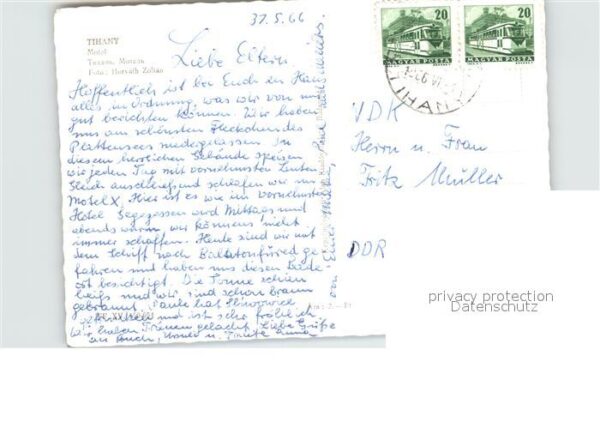 31.5.66
TIHANY
Motel
Foto: Horváth Zoltán
Liebe Eltern
Hoffentlich ist bei Euch im Haus
alles in Ordnung, was wir von uns
gut berichten können. Wir haben
uns am schönsten Fleckchen des
Plattensees niedergelassen. In
diesem herrlichen Gebäude speisen
wir jeden Tag mit vornehmsten Leuten
Gleich anschliessend schlafen wir im
Motel X. Hier ist es wie im vornehmsten
Hotel. Gegegessen wird Mittags und
abends warm, wir können's nicht
immer schaffen. Heute sind wir mit
dem Schiff nach Balatonfüred ge-
fahren und haben uns diesen Bade-
ort besichtigt. Die Sonne schien
heiß und wir sind schon braun
gebrannt. Tante hat
und ist sehr fröhlich
wir haben Tränen gelacht. Liebe Grüße
an Euch, u. Tante
20
20
MAGYAR POSTA
MAGYAR POSTA
TIHANY
VDK
Herrn u. Frau
Fritz Müller
DDR
privacy protection
Datenschutz